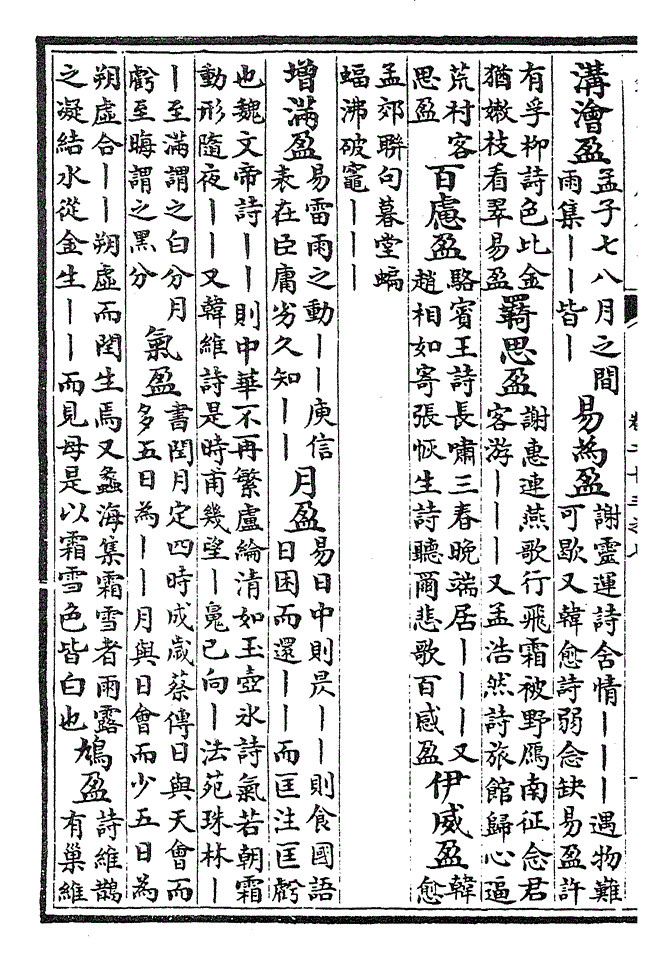 溝澮盈孟子七八月之間雨集丨丨皆丨易為盈謝靈運詩含情丨丨丨遇物難可歇又韓愈詩弱念缺易盈許
有孚栁詩色比金猶嫩枝看翠易盈羇思盈謝惠連燕歌行飛霜被野鴈南征念君客游丨丨丨又孟浩然詩旅館歸心逼
荒村客思盈百慮盈駱賓王詩長嘯三春晚端居丨丨丨又趙相如寄張恢生詩聽爾悲歌百感盈伊威盈韓愈
孟郊聯句暮堂蝙蝠沸破竈丨丨丨
增滿盈易雷雨之動丨丨庾信表在臣庸劣久知丨丨月盈易日中則昃丨丨則食國語日困而還丨丨而匡注匡虧
也魏文帝詩丨丨則中華不再繁盧綸清如玉壺氷詩氣若朝霜動形隨夜丨丨又韓維詩是時甫幾望丨毚已向丨法苑珠林丨
丨至滿謂之白分月虧至晦謂之黑分氣盈書閏月定四時成歲蔡傳日與天會而多五日為丨丨月與日會而少五日為
朔虛合丨丨朔虛而閏生焉又蠡海集霜雪者雨露之凝結水從金生丨丨而見母是以霜雪色皆白也鳩盈詩維鵲有巢維